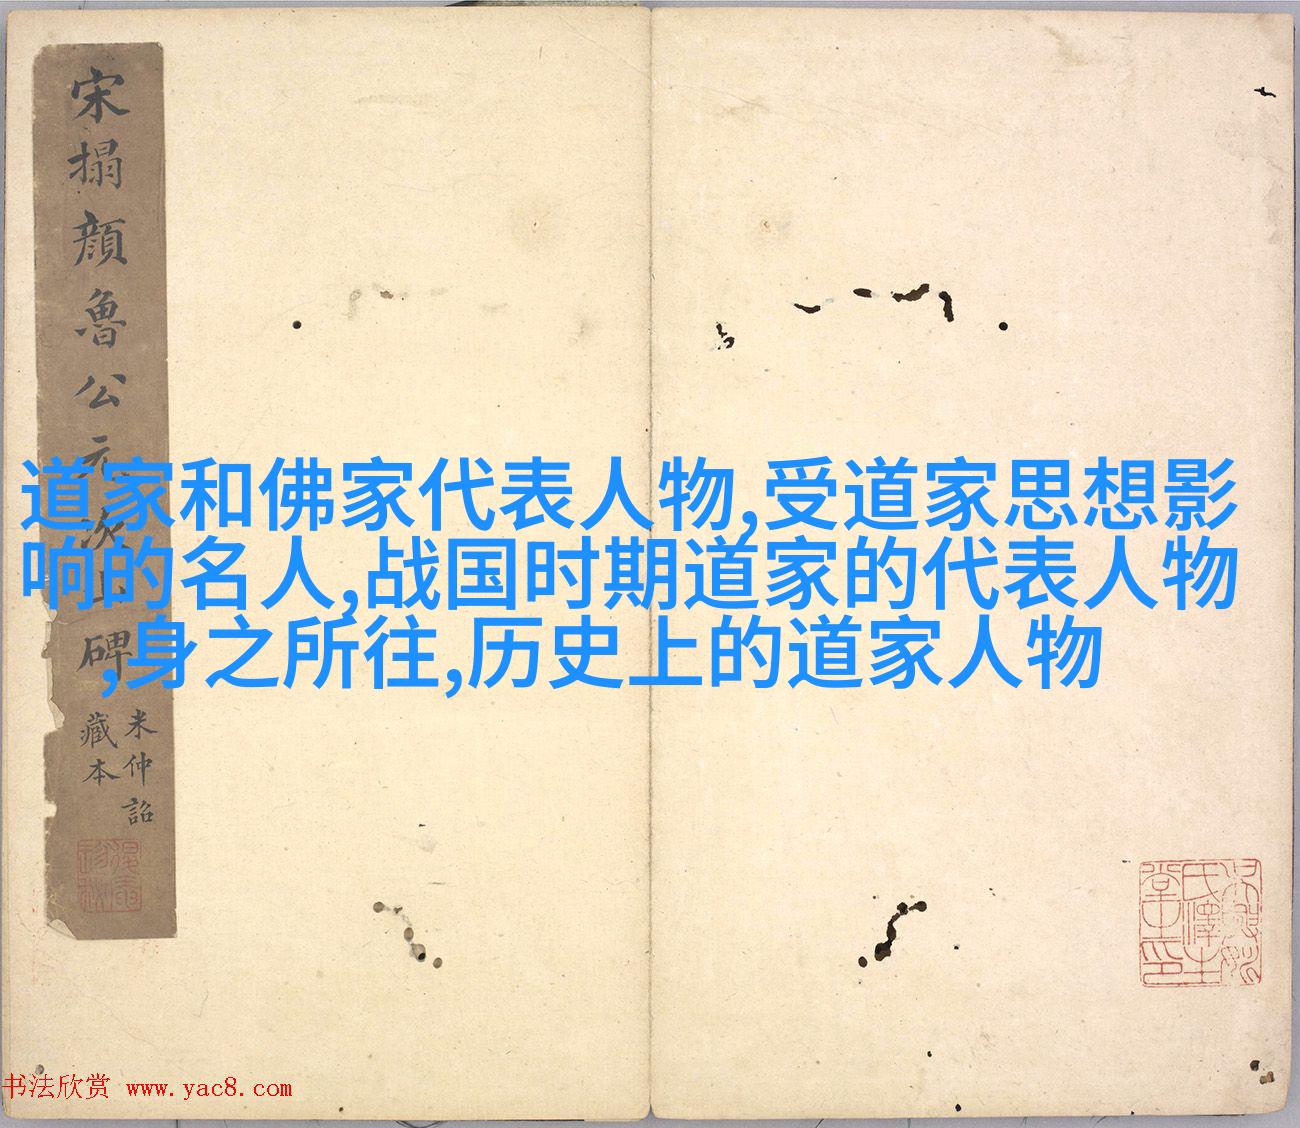 宋搨顔魯公元次山碑
米仲詔
藏本
道家和佛家代表人物,受道家思想影
响的名人,战国时期道家的代表人物
,身之所往,历史上的道家人物
书法欣赏 www.yac8.com